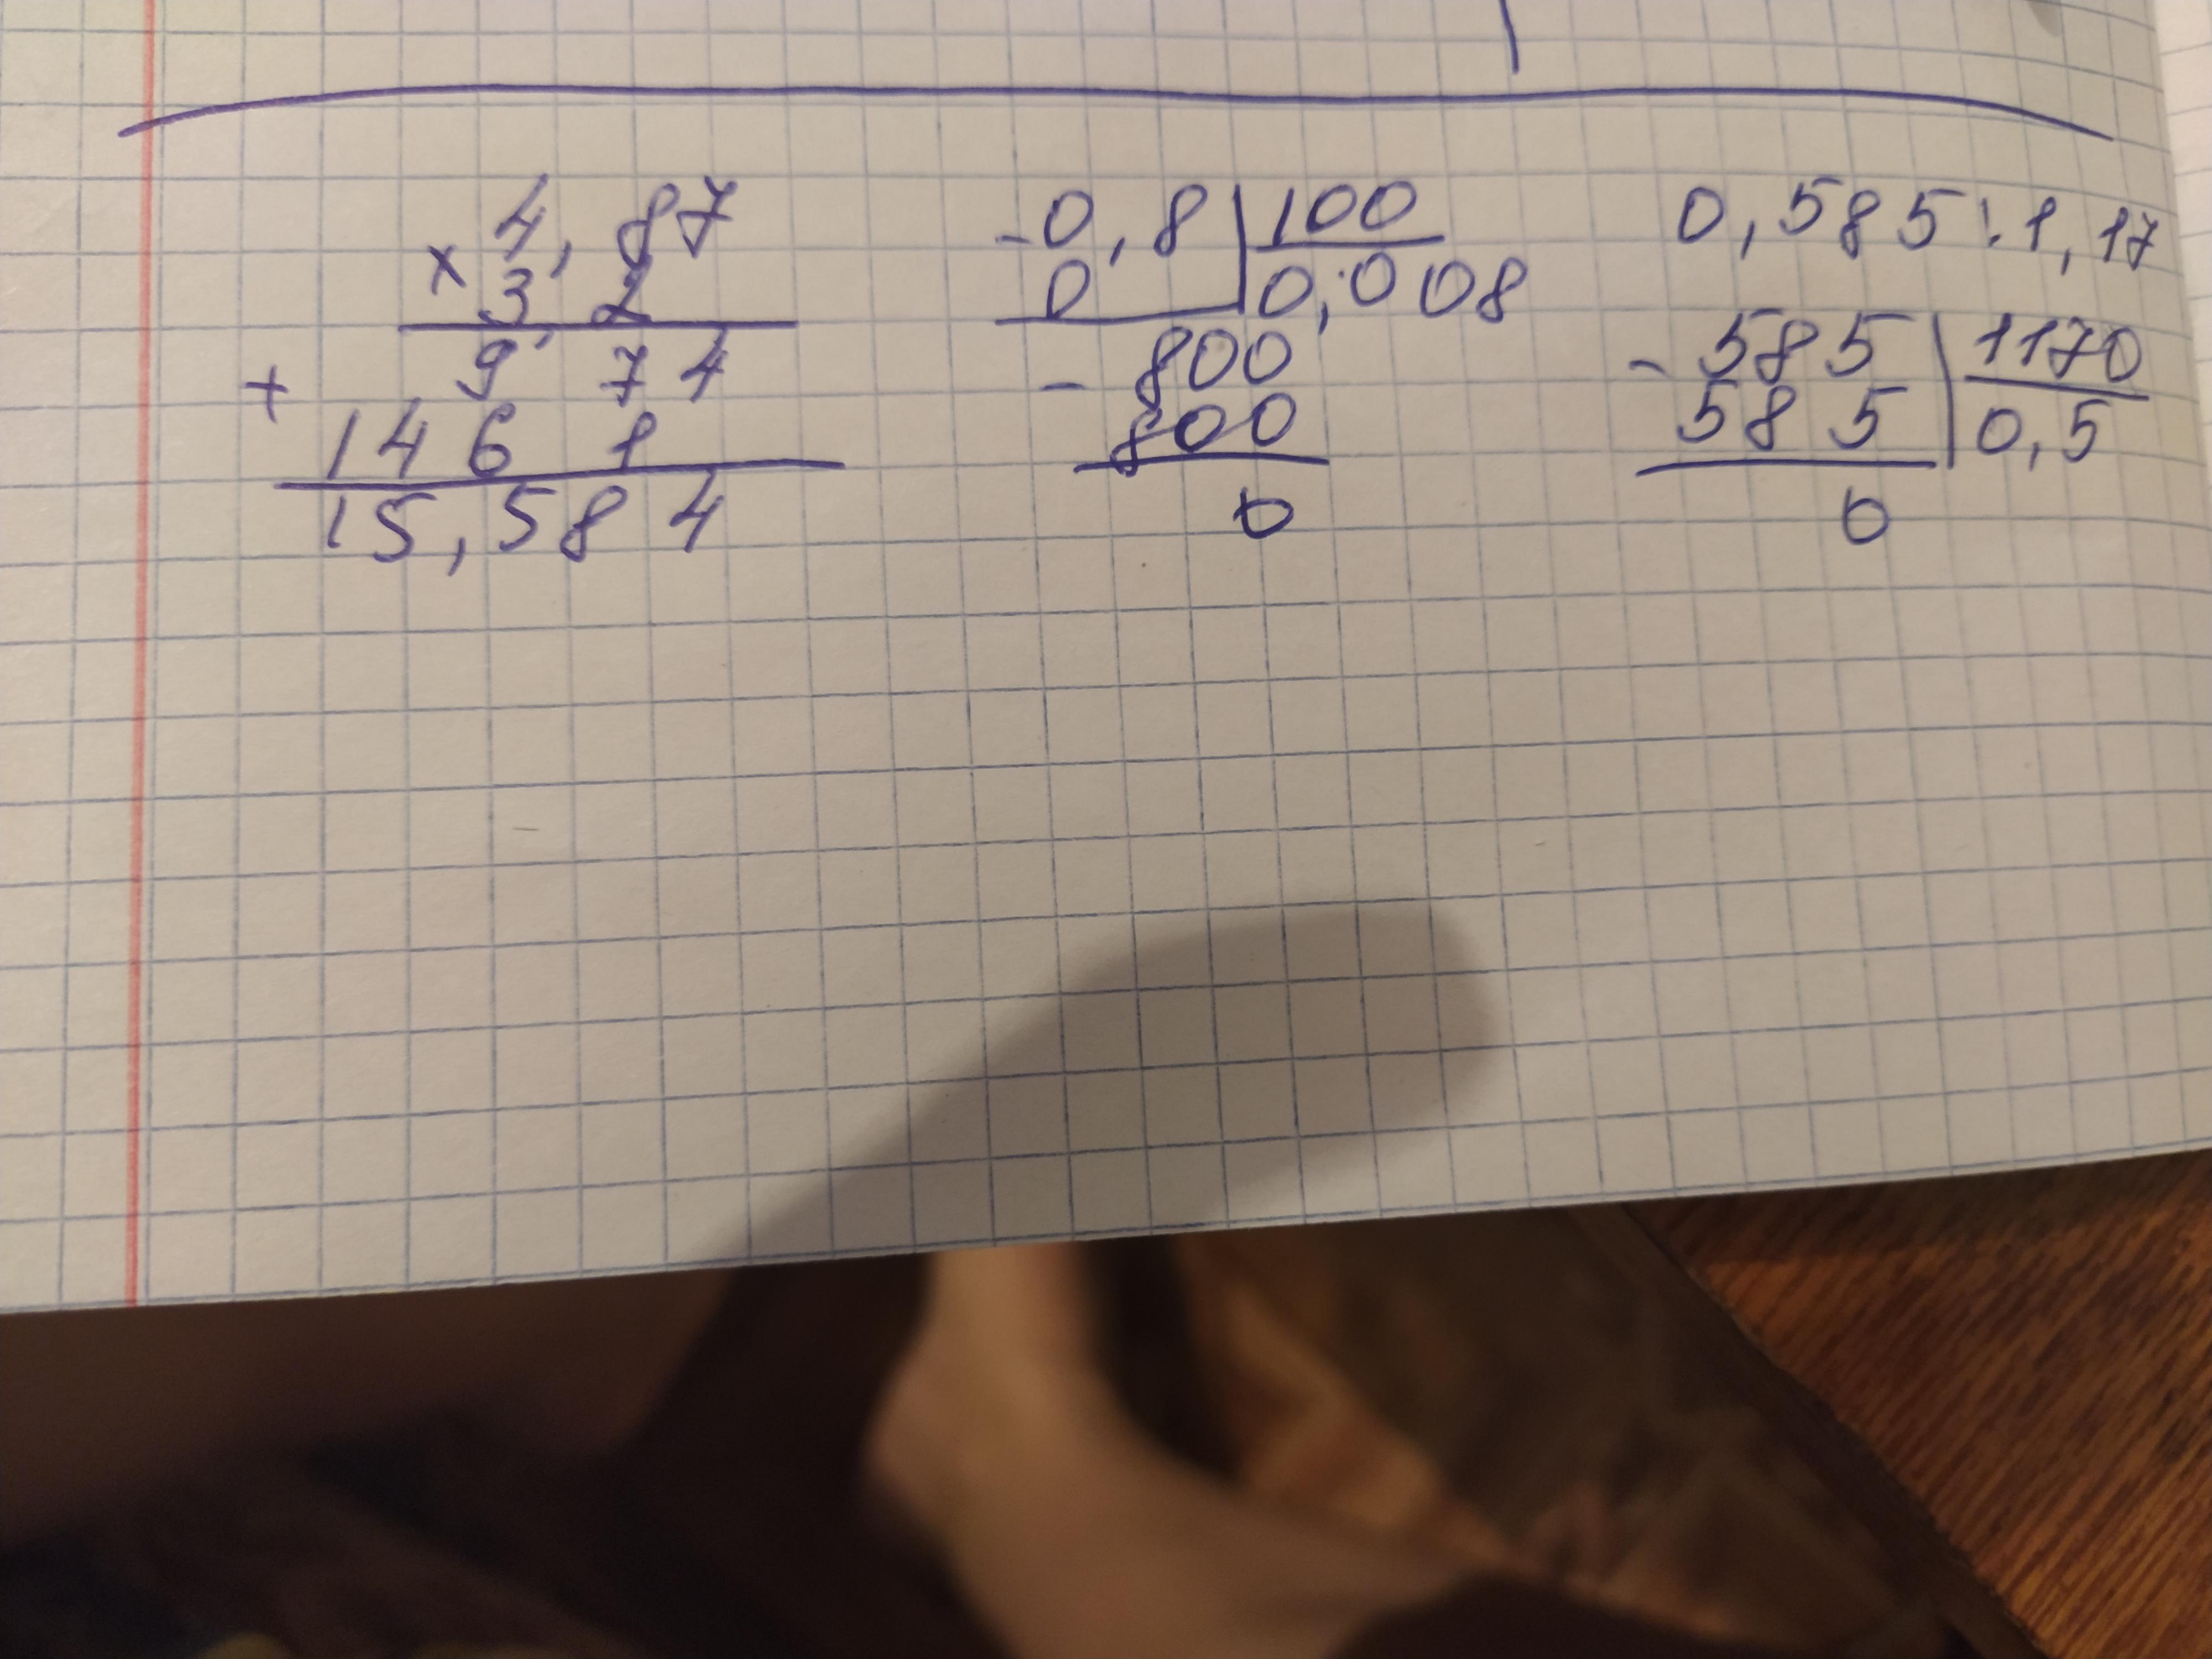 × 4,87
3,2
+ 9 74
1461
15,584
- 0,8 | 100
0 | 0,008
- 800
800
0
0,585:1,17
- 585 | 1170
585 | 0,5
0